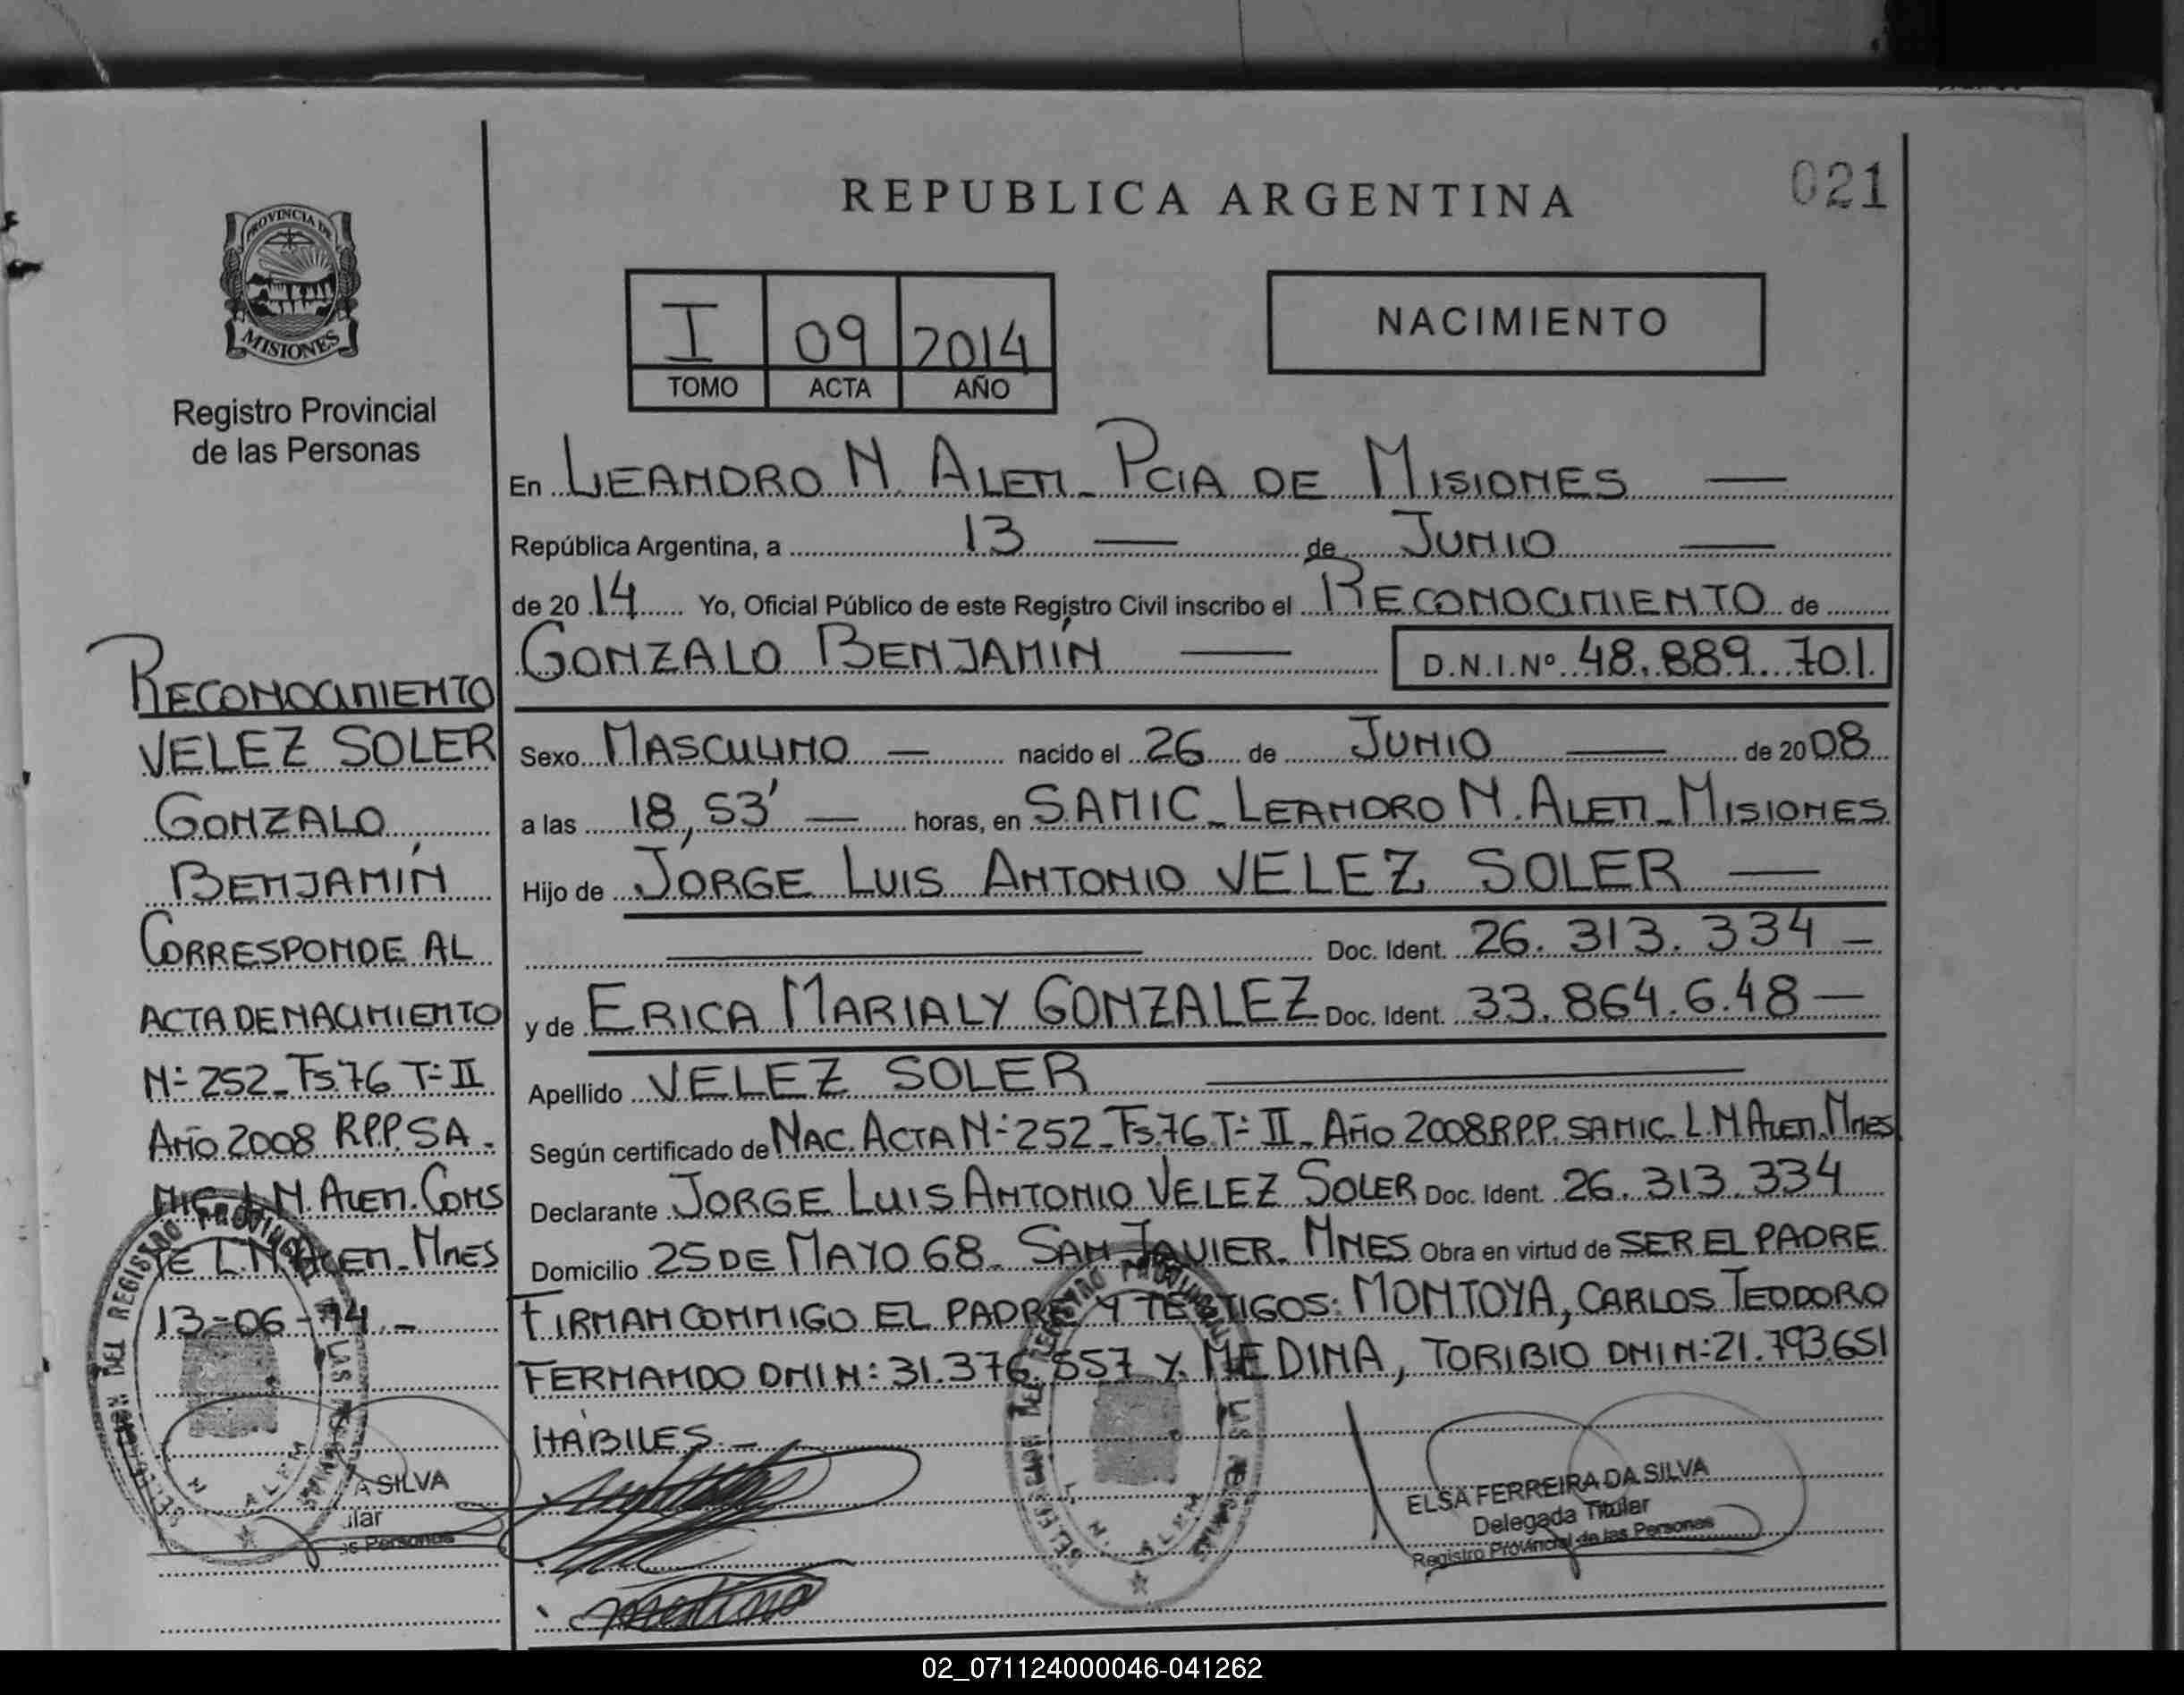 021
REPUBLICA ARGENTINA
PROVINCIA DE
MISIONES
Registro Provincial
de las Personas
I 09 2014
TOMO ACTA AÑO
NACIMIENTO
En LEANDRO N. ALEM - PCIA DE MISIONES —
República Argentina, a 13 — de JUNIO —
de 2014 Yo, Oficial Público de este Registro Civil inscribo el RECONOCIMIENTO de
GONZALO BENJAMÍN — D.N.I.Nº 48.889.701.
Sexo MASCULINO — nacido el 26 de JUNIO — de 2008
a las 18,53' — horas, en SAMIC - LEANDRO N. ALEM - MISIONES
Hijo de JORGE LUIS ANTONIO VELEZ SOLER —
— Doc. Ident. 26.313.334 —
y de ERICA MARIALY GONZALEZ Doc. Ident. 33.864.648 —
Apellido VELEZ SOLER —
Según certificado de NAC. ACTA Nº 252 - Fs. 76 Tº II - AÑO 2008 R.P.P. SAMIC. L.N ALEM. MNES
Declarante JORGE LUIS ANTONIO VELEZ SOLER Doc. Ident. 26.313.334
Domicilio 25 DE MAYO 68 - SAN JAVIER. MNES Obra en virtud de SER EL PADRE
FIRMAN CONMIGO EL PADRE Y TESTIGOS: MONTOYA, CARLOS TEODORO
FERNANDO DNI N: 31.376.557 Y MEDINA, TORIBIO DNI N: 21.793.651
HÁBILES. -
RECONOCIMIENTO
VELEZ SOLER
GONZALO
BENJAMÍN
CORRESPONDE AL
ACTA DE NACIMIENTO
Nº 252 - Fs. 76 Tº II
AÑO 2008 R.P.P. SA -
MIC. L.N. ALEM. CONS
TE L.N ALEM - MNES
13-06-14. -
A SILVA
ular
s Personas
DEL REGISTRO PROVINCIAL
LAS PERSONAS
L. N. ALEM
ELSA FERREIRA DA SILVA
Delegada Titular
Registro Provincial de las Personas
02_071124000046-041262